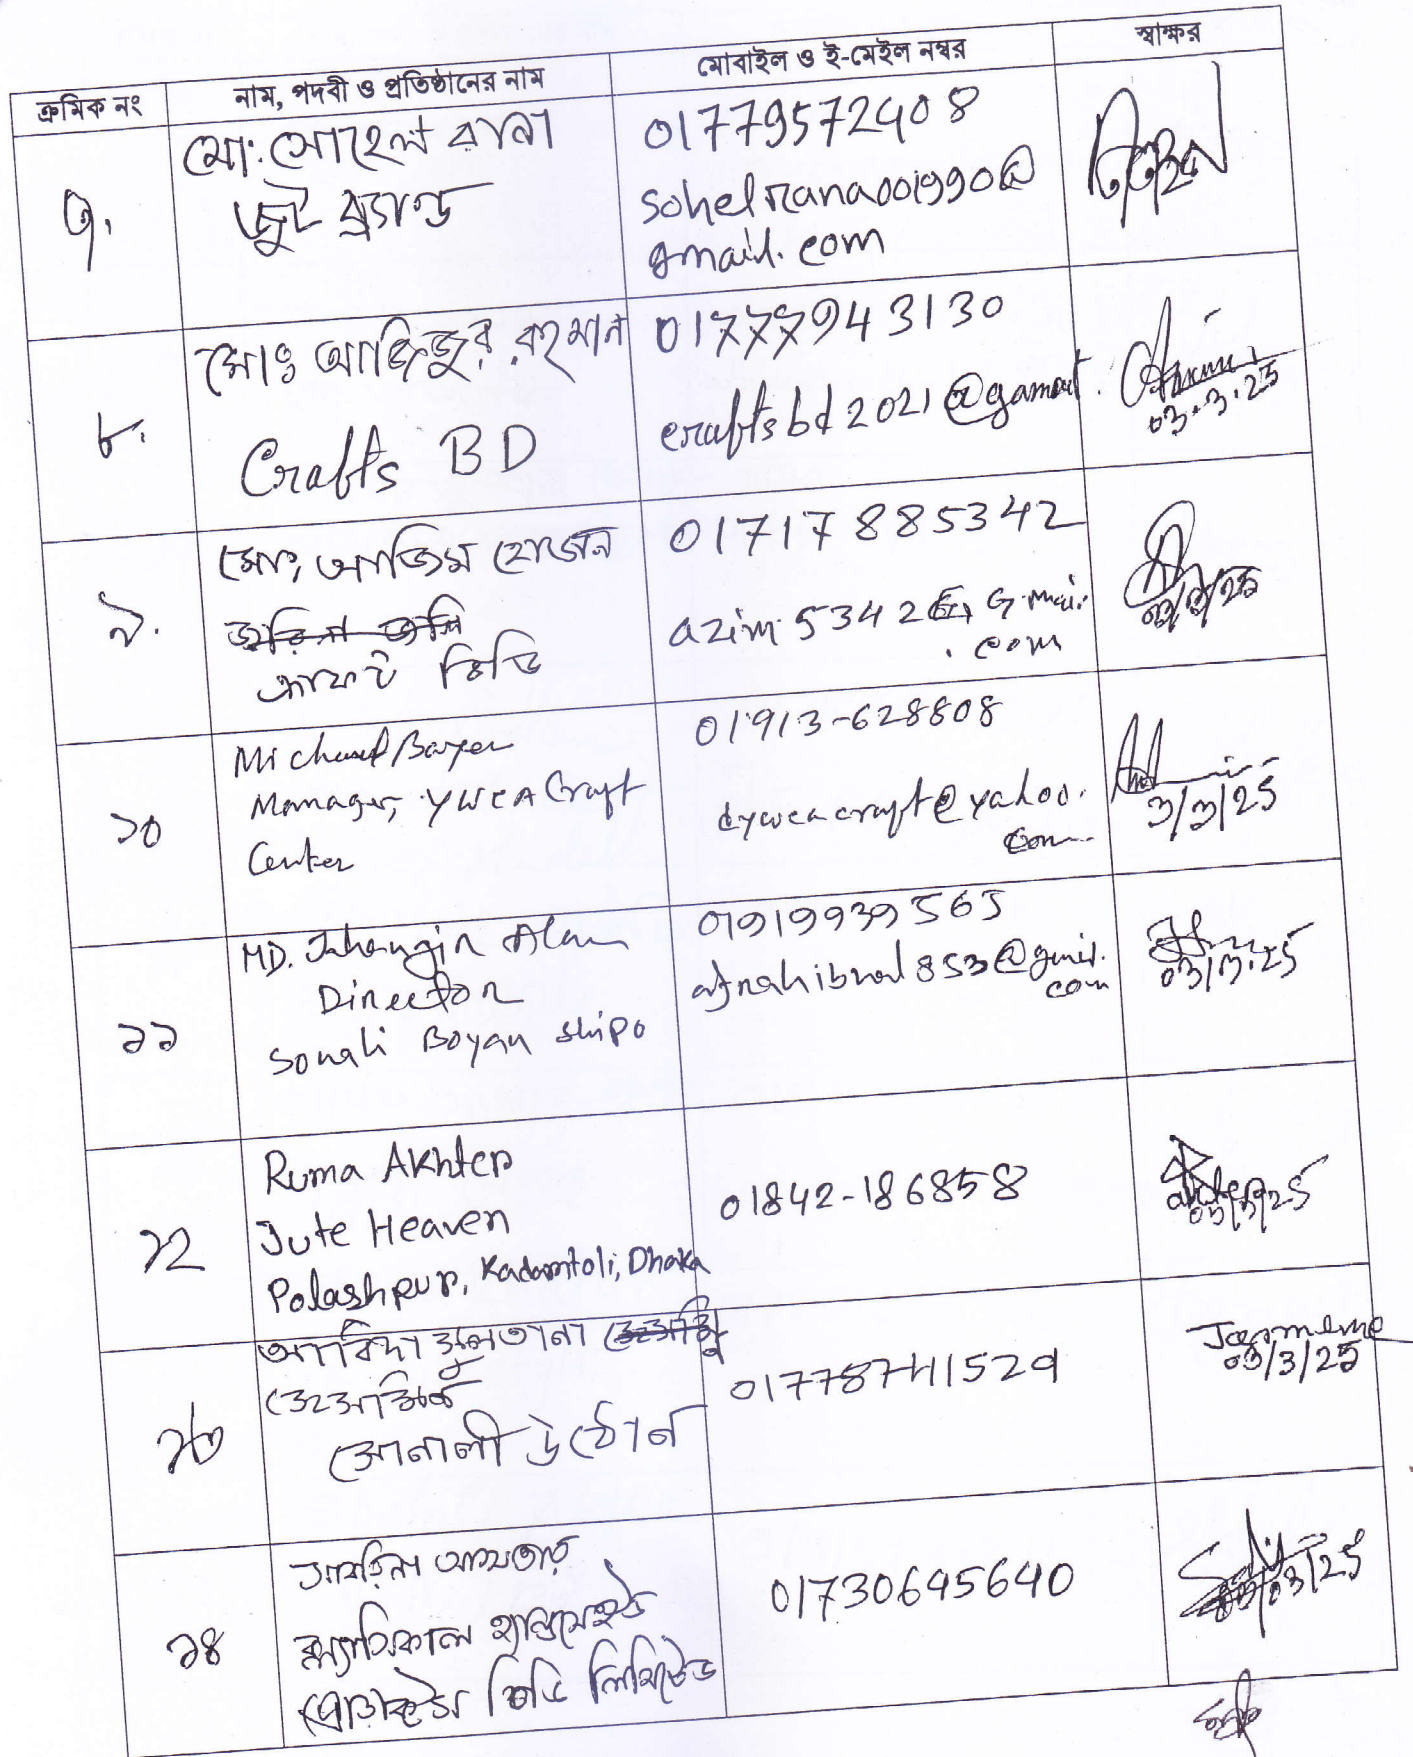 ক্রমিক নং	নাম, পদবী ও প্রতিষ্ঠানের নাম	মোবাইল ও ই-মেইল নম্বর	স্বাক্ষর
৭.
মো: সোহেল রানা
জুট ব্র্যান্ড
01779572408
sohelrana001990@
gmail.com
৮.
মোঃ আজিজুর রহমান
Crafts BD
01777943130
craftsbd2021@gamail.
03.3.25
৯.
মোঃ আজিম হোসেন
ক্রাফট বিডি
01717885342
azim.5342@G.mai.
.com
১০
Michael
Manager, YWCA Craft
Center
01913-628808
dywcacraft@yahoo.
com
3/3/25
১১
MD. Jahangir Alam
Director
Sonali Boyan Shipo
01919939565
853@gmil.
com
03/3.25
১২
Ruma Akhter
Jute Heaven
Polashpur, Kadamtoli, Dhaka
01842-186858
03/3/25
১৩
আবিদা সুলতানা
সোনালী উঠোন
01778741529
03/3/25
১৪
সাবরিনা আখতার
ক্ল্যাসিকাল হ্যান্ডমেইড
প্রোডাক্টস বিডি লিমিটেড
01730695640
03/03/25